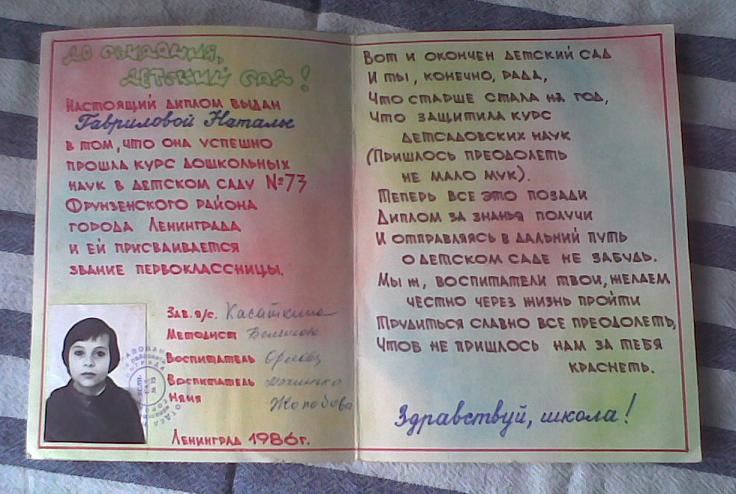 До свидания,
детский сад!
Настоящий диплом выдан
Гавриловой Наталье
в том, что она успешно
прошла курс дошкольных
наук в детском саду №73
Фрунзенского района
города Ленинграда
и ей присваивается
звание первоклассницы.
Зав. я/с. Касаткина
Методист
Воспитатель Орловец
Воспитатель
Няня Жолобова
Ленинград 1986г.
Вот и окончен детский сад
И ты, конечно, рада,
Что старше стала на год,
Что защитила курс
детсадовских наук
(Пришлось преодолеть
не мало мук).
Теперь все это позади
Диплом за знанья получи
И отправляясь в дальний путь
о детском саде не забудь.
Мы ж, воспитатели твои, желаем
честно через жизнь пройти
Трудиться славно все преодолеть,
Чтоб не пришлось нам за тебя
краснеть.
Здравствуй, школа!